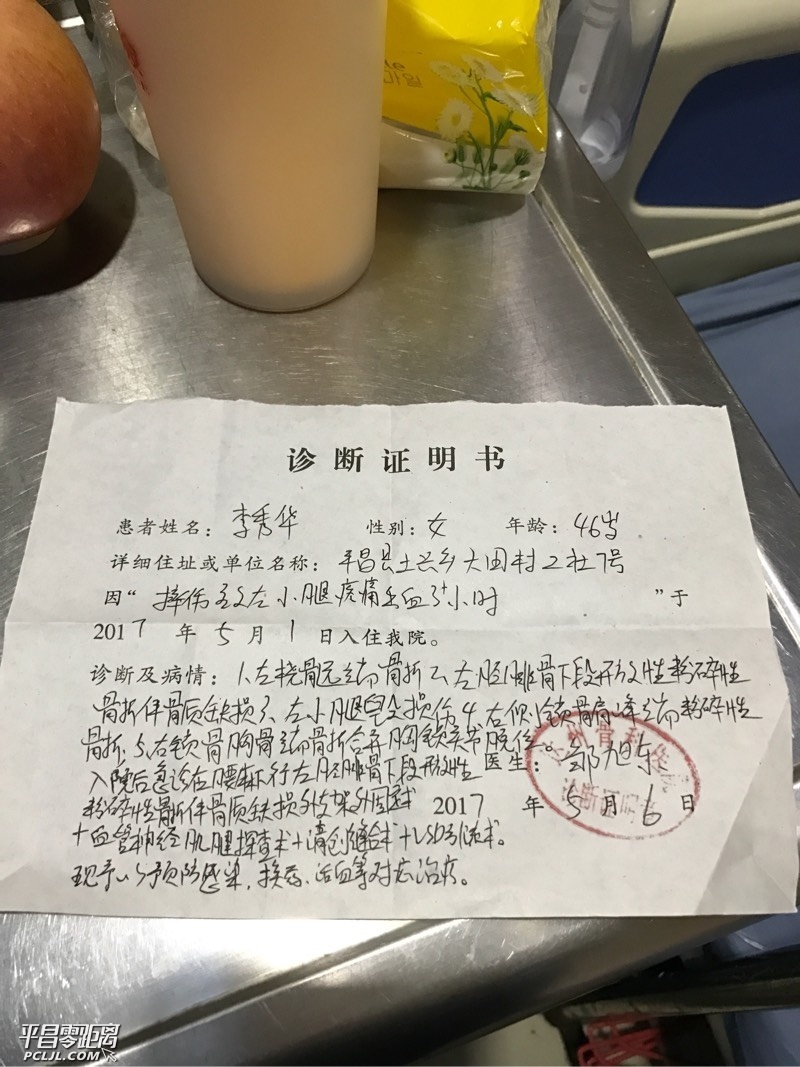 마일
诊断证明书
患者姓名：李秀华 性别：女 年龄：46岁
详细住址或单位名称：平昌县土兴乡大田村2社7号
因“摔伤致左小腿疼痛出血3+小时”于
2017年5月1日入住我院。
诊断及病情：1、左桡骨远端骨折 2、左胫腓骨下段开放性粉碎性
骨折伴骨质缺损 3、左小腿皮肤损伤 4、右侧锁骨肩峰端粉碎性
骨折 5、右锁骨胸骨端骨折合并胸锁关节脱位。
入院后急诊在腰麻下行左胫腓骨下段开放性 医生：邹旭东
粉碎性骨折伴骨质缺损外支架外固定术 2017年5月6日
+血管神经肌腱探查术+清创缝合术+VSD引流术。
现予以预防感染，换药、活血等对症治疗。
州骨科
诊断证明
平昌零距离
PCLJL.COM